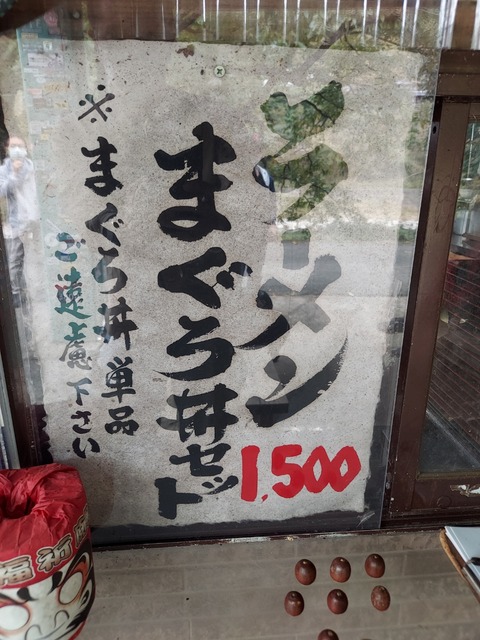 ラーメン
まぐろ丼セット
1,500
※まぐろ丼単品
ご遠慮下さい
福